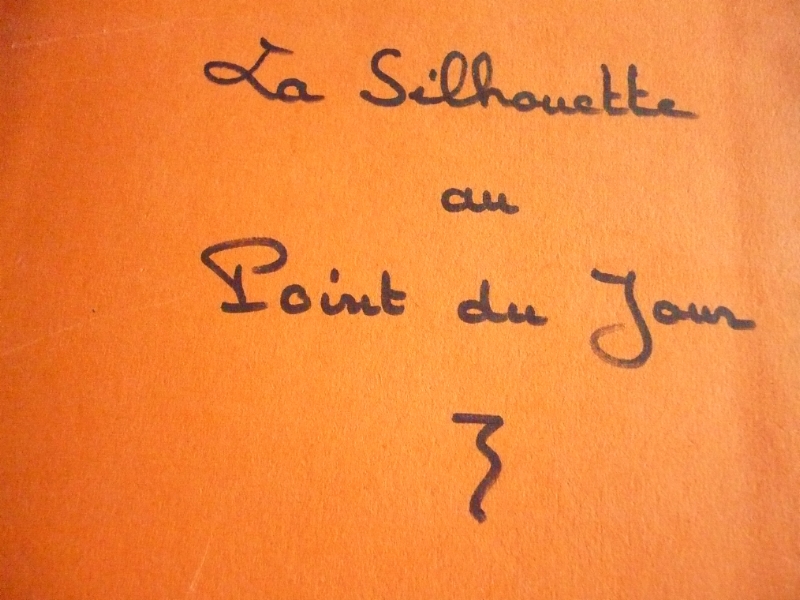 La Silhouette
au
Point du Jour